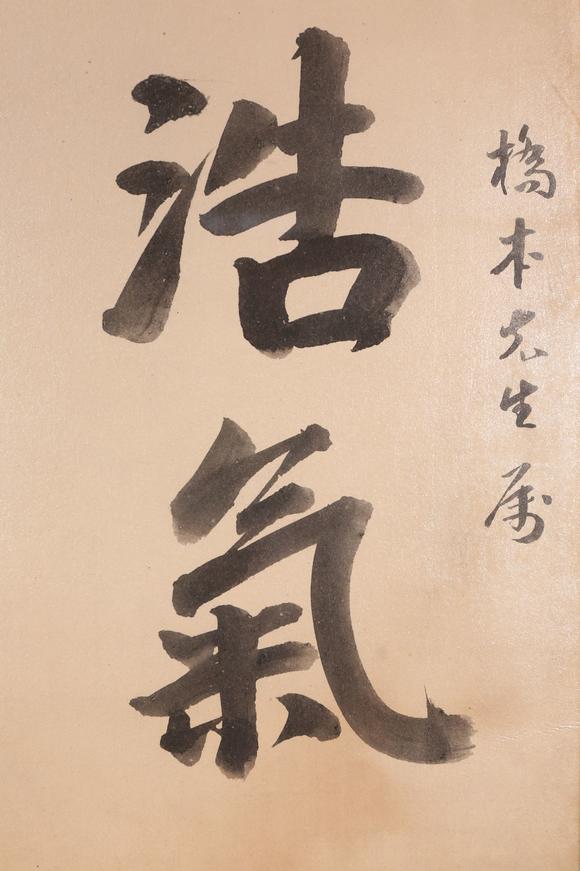 橋本先生属
浩氣